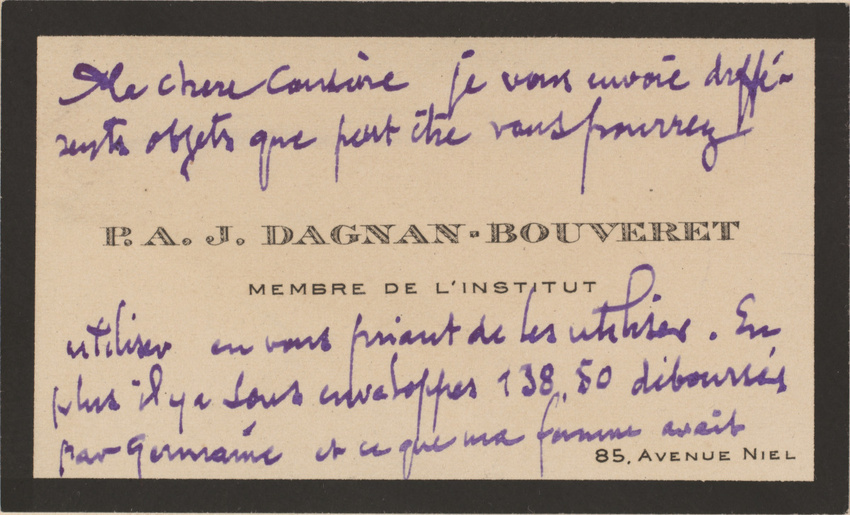 Ma chere Cousine je vous envoie diffé-
rents objets que peut être vous pourrez
P. A. J. DAGNAN-BOUVERET
MEMBRE DE L'INSTITUT
utiliser en vous priant de les utiliser. En
plus il y a sous enveloppes 138,50 déboursés
par Germaine et ce que ma femme avait
85, AVENUE NIEL